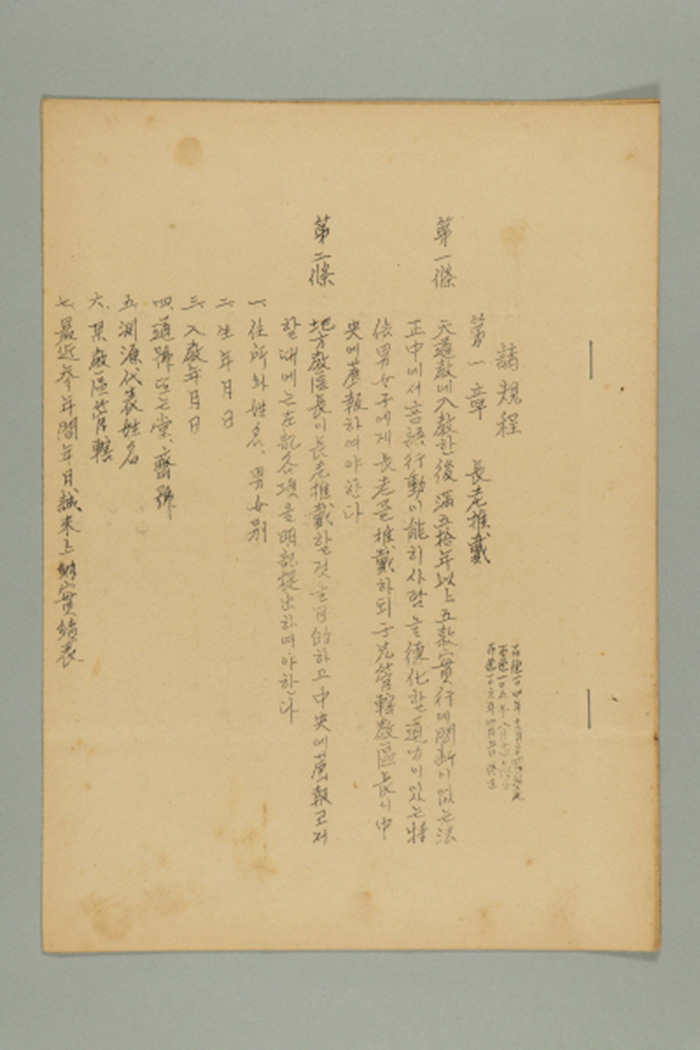 諸規程
第一章 長老推戴
第一條 天道敎에入敎한後滿五拾年以上五款實行에間斷이없는法
正中에서言語行動이能히사람을德化할道力이있는特
信男女子에게長老를推戴하되于先管轄敎區長이中
央에薦報하여야한다
第二條 地方敎區長이長老推戴할것을目的하고中央에薦報코저
할대에는左記各項을明記提出하여야한다
一、住所와姓名、男女別
二、生年月日
三、入敎年月日
四、道號또는堂、齋號
五、淵源代表姓名
六、某敎區管轄
七、最近參年間年月誠米上納實績表